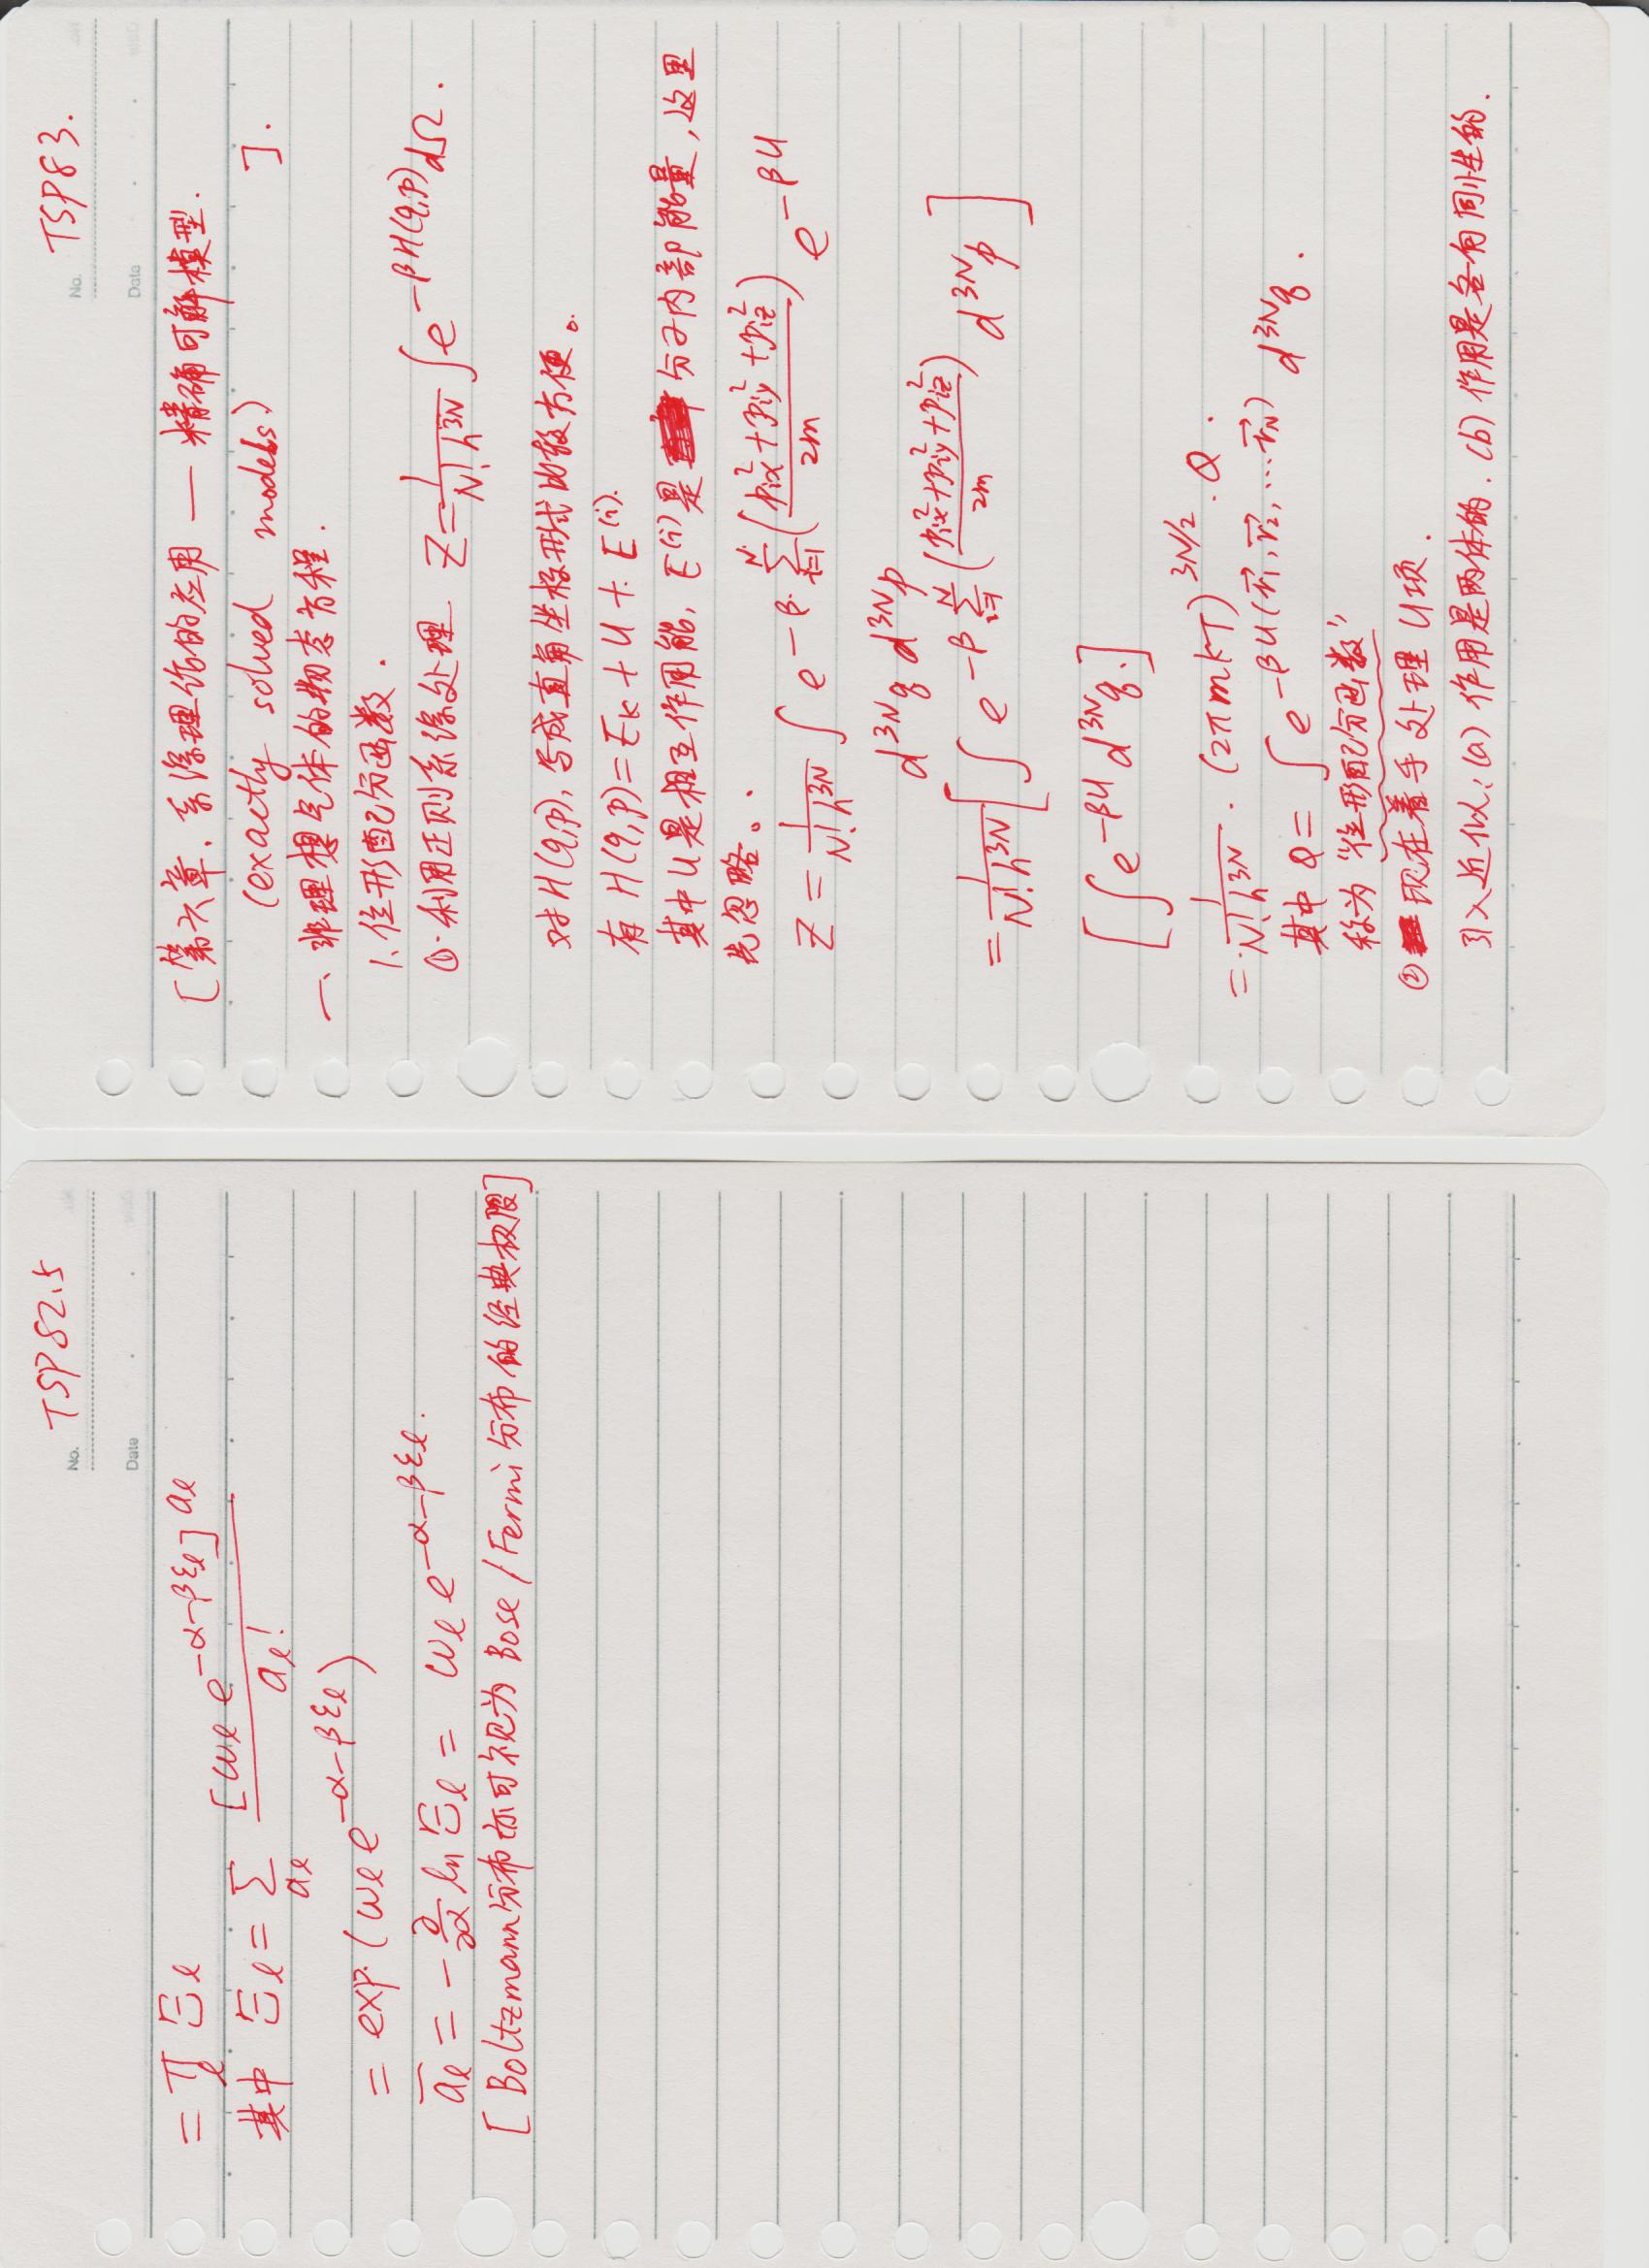 No. TSP82.5
Date
= π_l Ξ_l
其中 Ξ_l = Σ_{a_l} [ω_l e^{-α-βε_l}]^{a_l} / a_l!
= exp.(ω_l e^{-α-βε_l})
\bar{a_l} = -∂/∂α ln Ξ_l = ω_l e^{-α-βε_l}.
[Boltzmann分布亦可视为 Bose/Fermi分布的经典极限]
No. TSP83.
Date
[第六章.系综理论的应用 — 精确可解模型.
(exactly solved models) ].
一、非理想气体的物态方程.
1.位形配分函数.
①.利用正则系综处理 Z = 1/(N!h^{3N}) ∫e^{-βH(q,p)} dΩ.
对H(q,p),写成直角坐标形式比较方便。
有 H(q,p) = E_K + U + E^{(i)}.
其中U是相互作用能, E^{(i)}是分子内部能量,这里
先忽略。
Z = 1/(N!h^{3N}) ∫ e^{-β·Σ_{i=1}^{N}((p_{ix}^2+p_{iy}^2+p_{iz}^2)/2m)} e^{-βU}
d^{3N}q d^{3N}p
= 1/(N!h^{3N}) [∫ e^{-βΣ_{i=1}^{N}((p_{ix}^2+p_{iy}^2+p_{iz}^2)/2m)} d^{3N}p]
[∫e^{-βU} d^{3N}q.]
= 1/(N!h^{3N}) · (2πmkT)^{3N/2} · Q.
其中 Q = ∫e^{-βU(\vec{r_1},\vec{r_2},...\vec{r_N})} d^{3N}q.
称为 "位形配分函数"
② 现在着手处理 U项.
引入近似:(a) 作用是两体的. (b) 作用是各向同性的.